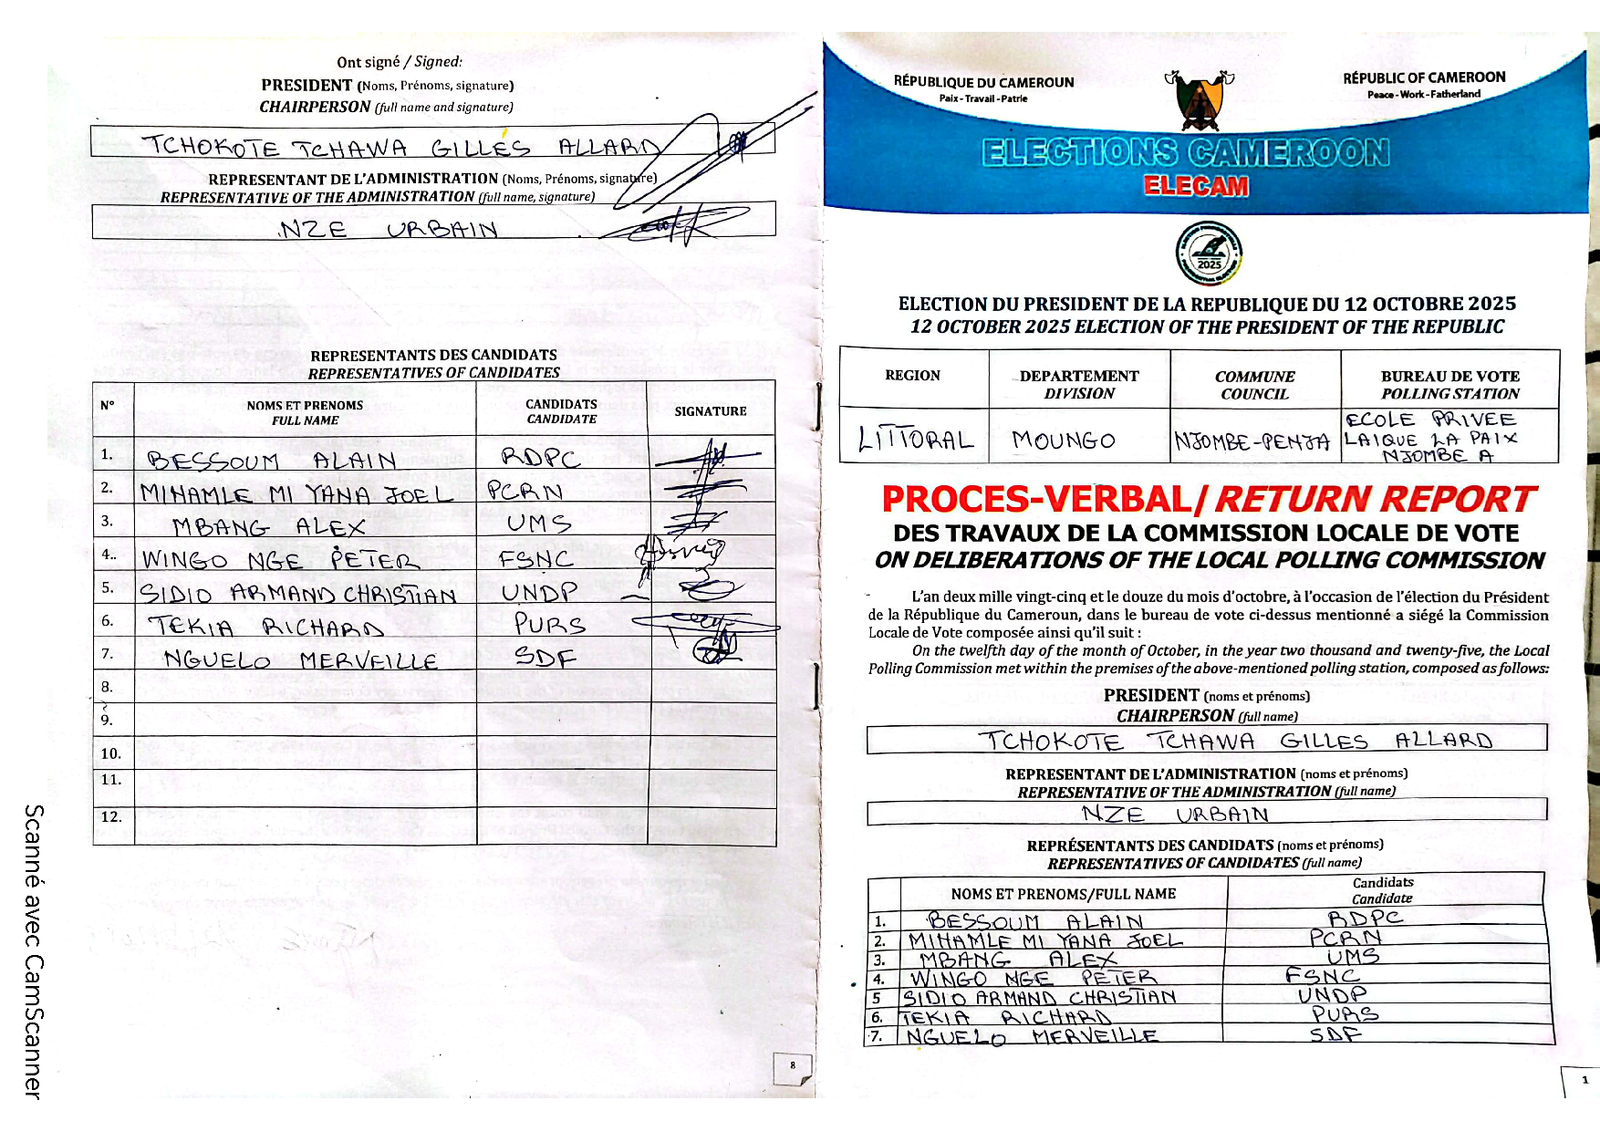 Ont signé / Signed:
PRESIDENT (Noms, Prénoms, signature)
CHAIRPERSON (full name and signature)
TCHOKOTE TCHAWA GILLES ALLARD
REPRESENTANT DE L'ADMINISTRATION (Noms, Prénoms, signature)
REPRESENTATIVE OF THE ADMINISTRATION (full name, signature)
NZE URBAIN
REPRESENTANTS DES CANDIDATS
REPRESENTATIVES OF CANDIDATES
N° NOMS ET PRENOMS CANDIDATS SIGNATURE
FULL NAME CANDIDATE
1. BESSOUM ALAIN RDPC
2. MIHAMLE MI YANA JOEL PCRN
3. MBANG ALEX UMS
4.. WINGO NGE PETER FSNC
5. SIDIO ARMAND CHRISTIAN UNDP
6. TEKIA RICHARD PURS
7. NGUELO MERVEILLE SDF
8.
9.
10.
11.
12.
8
Scanné avec CamScanner
RÉPUBLIQUE DU CAMEROUN
Paix - Travail - Patrie
RÉPUBLIC OF CAMEROON
Peace - Work - Fatherland
ELECTIONS CAMEROON
ELECAM
2025
ELECTION DU PRESIDENT DE LA REPUBLIQUE DU 12 OCTOBRE 2025
12 OCTOBER 2025 ELECTION OF THE PRESIDENT OF THE REPUBLIC
REGION DEPARTEMENT COMMUNE BUREAU DE VOTE
DIVISION COUNCIL POLLING STATION
LITTORAL MOUNGO NJOMBE-PENJA ECOLE PRIVEE
LAIQUE LA PAIX
NJOMBE A
PROCES-VERBAL/ RETURN REPORT
DES TRAVAUX DE LA COMMISSION LOCALE DE VOTE
ON DELIBERATIONS OF THE LOCAL POLLING COMMISSION
L'an deux mille vingt-cinq et le douze du mois d'octobre, à l'occasion de l'élection du Président
de la République du Cameroun, dans le bureau de vote ci-dessus mentionné a siégé la Commission
Locale de Vote composée ainsi qu'il suit :
On the twelfth day of the month of October, in the year two thousand and twenty-five, the Local
Polling Commission met within the premises of the above-mentioned polling station, composed as follows:
PRESIDENT (noms et prénoms)
CHAIRPERSON (full name)
TCHOKOTE TCHAWA GILLES ALLARD
REPRESENTANT DE L'ADMINISTRATION (noms et prénoms)
REPRESENTATIVE OF THE ADMINISTRATION (full name)
NZE URBAIN
REPRÉSENTANTS DES CANDIDATS (noms et prénoms)
REPRESENTATIVES OF CANDIDATES (full name)
NOMS ET PRENOMS/FULL NAME Candidats
Candidate
1. BESSOUM ALAIN RDPC
2. MIHAMLE MI YANA JOEL PCRN
3. MBANG ALEX UMS
4. WINGO NGE PETER FSNC
5 SIDIO ARMAND CHRISTIAN UNDP
6. TEKIA RICHARD PURS
7. NGUELO MERVEILLE SDF
1